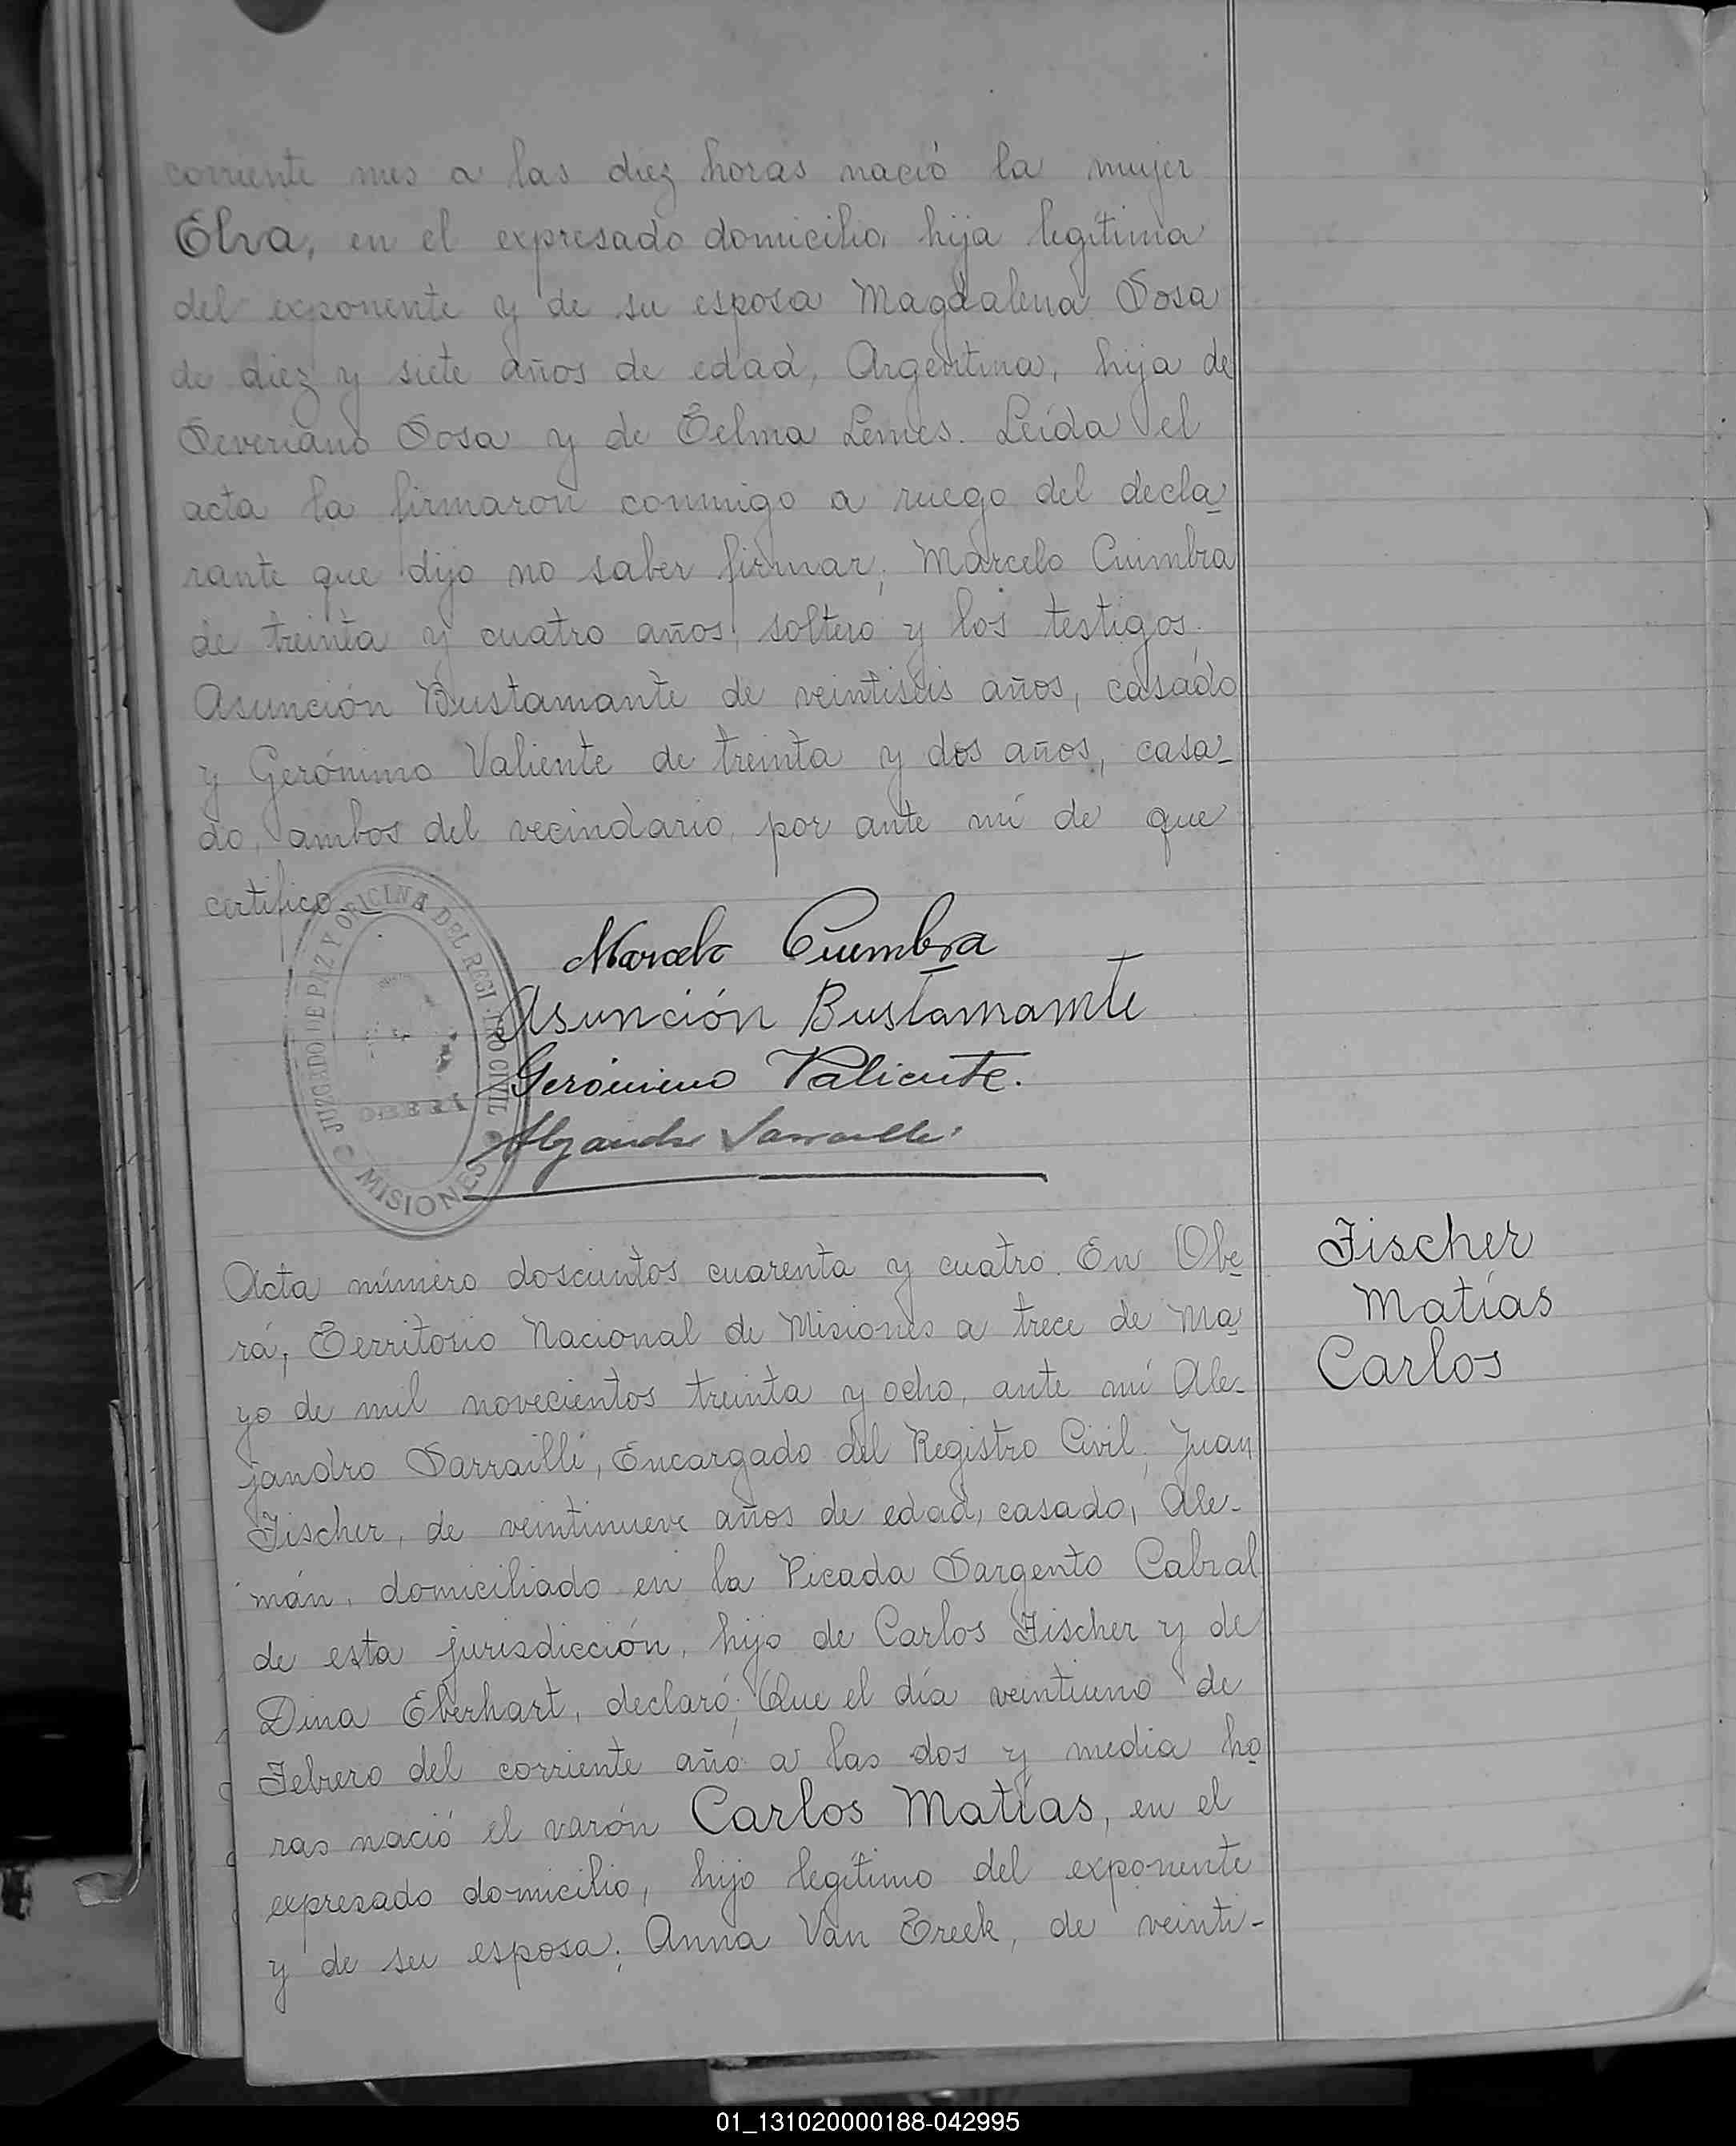 corriente mes a las diez horas nació la mujer
Elva, en el expresado domicilio, hija legítima
del exponente y de su esposa Magdalena Sosa
de diez y siete años de edad, Argentina, hija de
Severiano Sosa y de Telma Lemes. Leída el
acta la firmaron conmigo a ruego del decla-
rante que dijo no saber firmar; Marcelo Cuimbra
de treinta y cuatro años, soltero y los testigos.
Asunción Bustamante de veintiseis años, casado
y Gerónimo Valiente de treinta y dos años, casa-
do, ambos del vecindario, por ante mí de que
certifico.-
JUZGADO DE PAZ Y OFICINA DEL REGISTRO CIVIL
OBERA
MISIONES
Marcelo Cuimbra
Asunción Bustamamte
Gerónimo Valiente.
Alejandro Sarraille
Acta número doscientos cuarenta y cuatro. En Obe-
rá, Territorio Nacional de Misiones a trece de Ma-
yo de mil novecientos treinta y ocho, ante mí Ale-
jandro Sarraillé, Encargado del Registro Civil; Juan
Fischer, de veintinueve años de edad, casado, Ale-
mán, domiciliado en la Picada Sargento Cabral
de esta jurisdicción, hijo de Carlos Fischer y de
Dina Eberhart, declaró; Que el día veintiuno de
Febrero del corriente año a las dos y media ho-
ras nació el varón Carlos Matías, en el
expresado domicilio, hijo legítimo del exponente
y de su esposa; Anna Van Treek, de veinti-
Fischer
Matías
Carlos
01_131020000188-042995